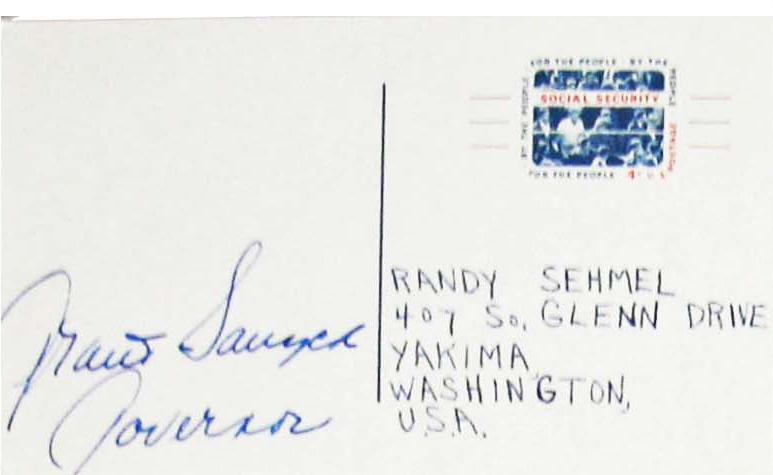 FOR THE PEOPLE · BY THE
PEOPLE
BY THE PEOPLE
SOCIAL SECURITY
POSTAGE
FOR THE PEOPLE 4¢ U.S.
Grant Sawyer
Governor
RANDY SEHMEL
407 So. GLENN DRIVE
YAKIMA
WASHINGTON,
U.S.A.